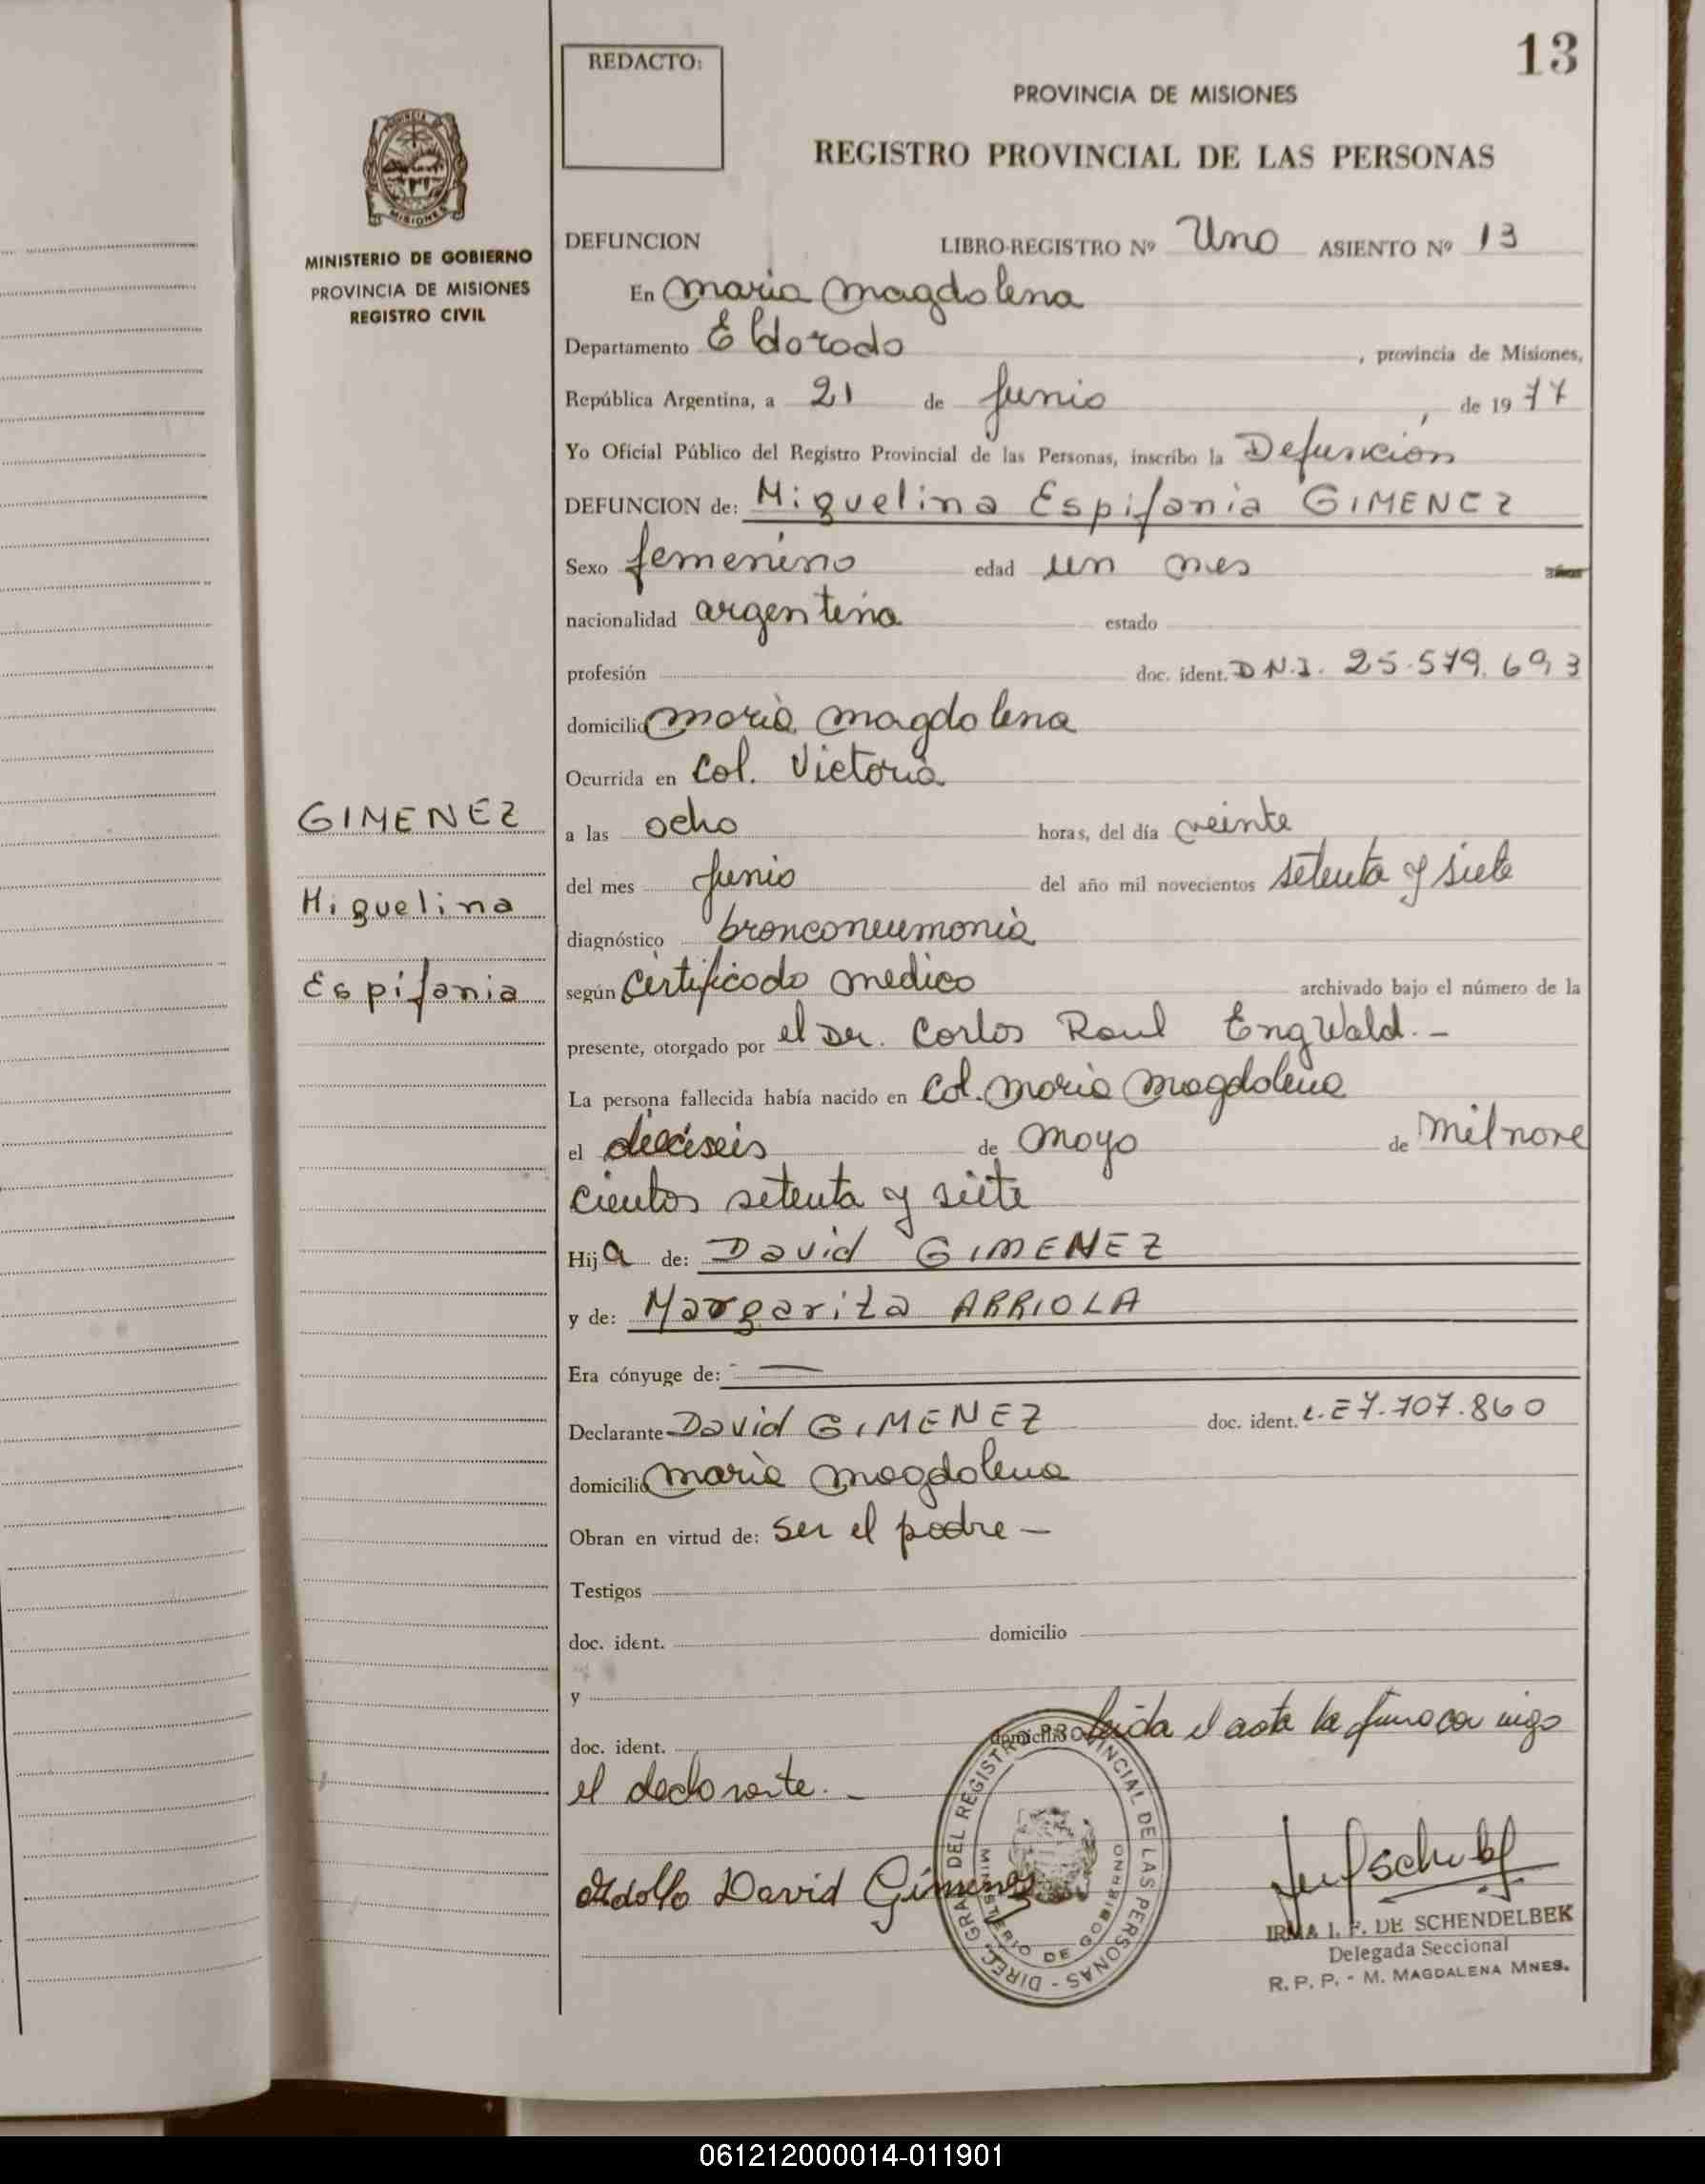 13
REDACTO:
PROVINCIA DE MISIONES
REGISTRO PROVINCIAL DE LAS PERSONAS
MISIONES
MINISTERIO DE GOBIERNO
PROVINCIA DE MISIONES
REGISTRO CIVIL
GIMENEZ
Miguelina
Espifania
DEFUNCION LIBRO-REGISTRO Nº Uno ASIENTO Nº 13
En Maria Magdalena
Departamento Eldorado, provincia de Misiones,
República Argentina, a 21 de Junio, de 1977
Yo Oficial Público del Registro Provincial de las Personas, inscribo la Defuncion
DEFUNCION de: Miguelina Espifania GIMENEZ
Sexo femenino edad un mes años
nacionalidad argentina estado
profesión doc. ident. D.N.I. 25.579.693
domicilio Maria Magdalena
Ocurrida en Col. Victoria
a las ocho horas, del día veinte
del mes Junio del año mil novecientos setenta y siete
diagnóstico bronconeumonia
según Certificado medico archivado bajo el número de la
presente, otorgado por el Dr. Carlos Raul Engwald.-
La persona fallecida había nacido en Col. Maria Magdalena
el dieciseis de Mayo de Milnove
cientos setenta y siete
Hija de: David GIMENEZ
y de: Margarita ARRIOLA
Era cónyuge de: —
Declarante David GIMENEZ doc. ident. L.E 7.707.860
domicilio Maria Magdalena
Obran en virtud de: Ser el padre —
Testigos
doc. ident. domicilio
y
doc. ident. domicilio leida el acta la firma con migo
el declarante. -
Adolfo David Gimenez
DIREC. GRAL DEL REGISTRO PROVINCIAL DE LAS PERSONAS -
MINISTERIO DE GOBIERNO
IRMA I. F. DE SCHENDELBEK
Delegada Seccional
R. P. P. - M. MAGDALENA MNES.
061212000014-011901